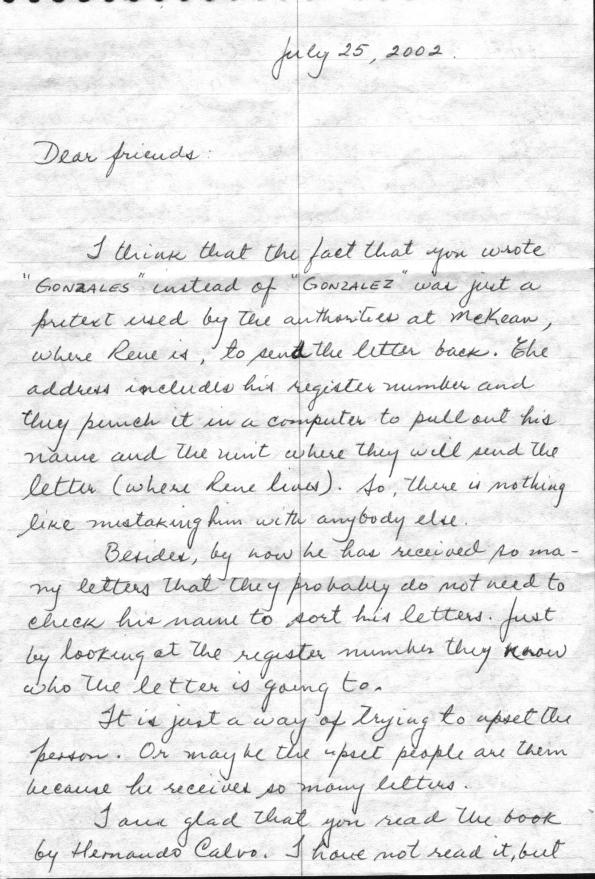 July 25, 2002.
Dear friends:
I think that the fact that you wrote
"GONZALES" instead of "GONZALEZ" was just a
pretext used by the authorities at McKean,
where Rene is, to send the letter back. The
address includes his register number and
they punch it in a computer to pull out his
name and the unit where they will send the
letter (where Rene lives). So, there is nothing
like mistaking him with anybody else.
Besides, by now he has received so ma-
ny letters that they probably do not need to
check his name to sort his letters. Just
by looking at the register number they know
who the letter is going to.
It is just a way of trying to upset the
person. Or maybe the upset people are them
because he receives so many letters.
I am glad that you read the book
by Hernando Calvo. I have not read it, but